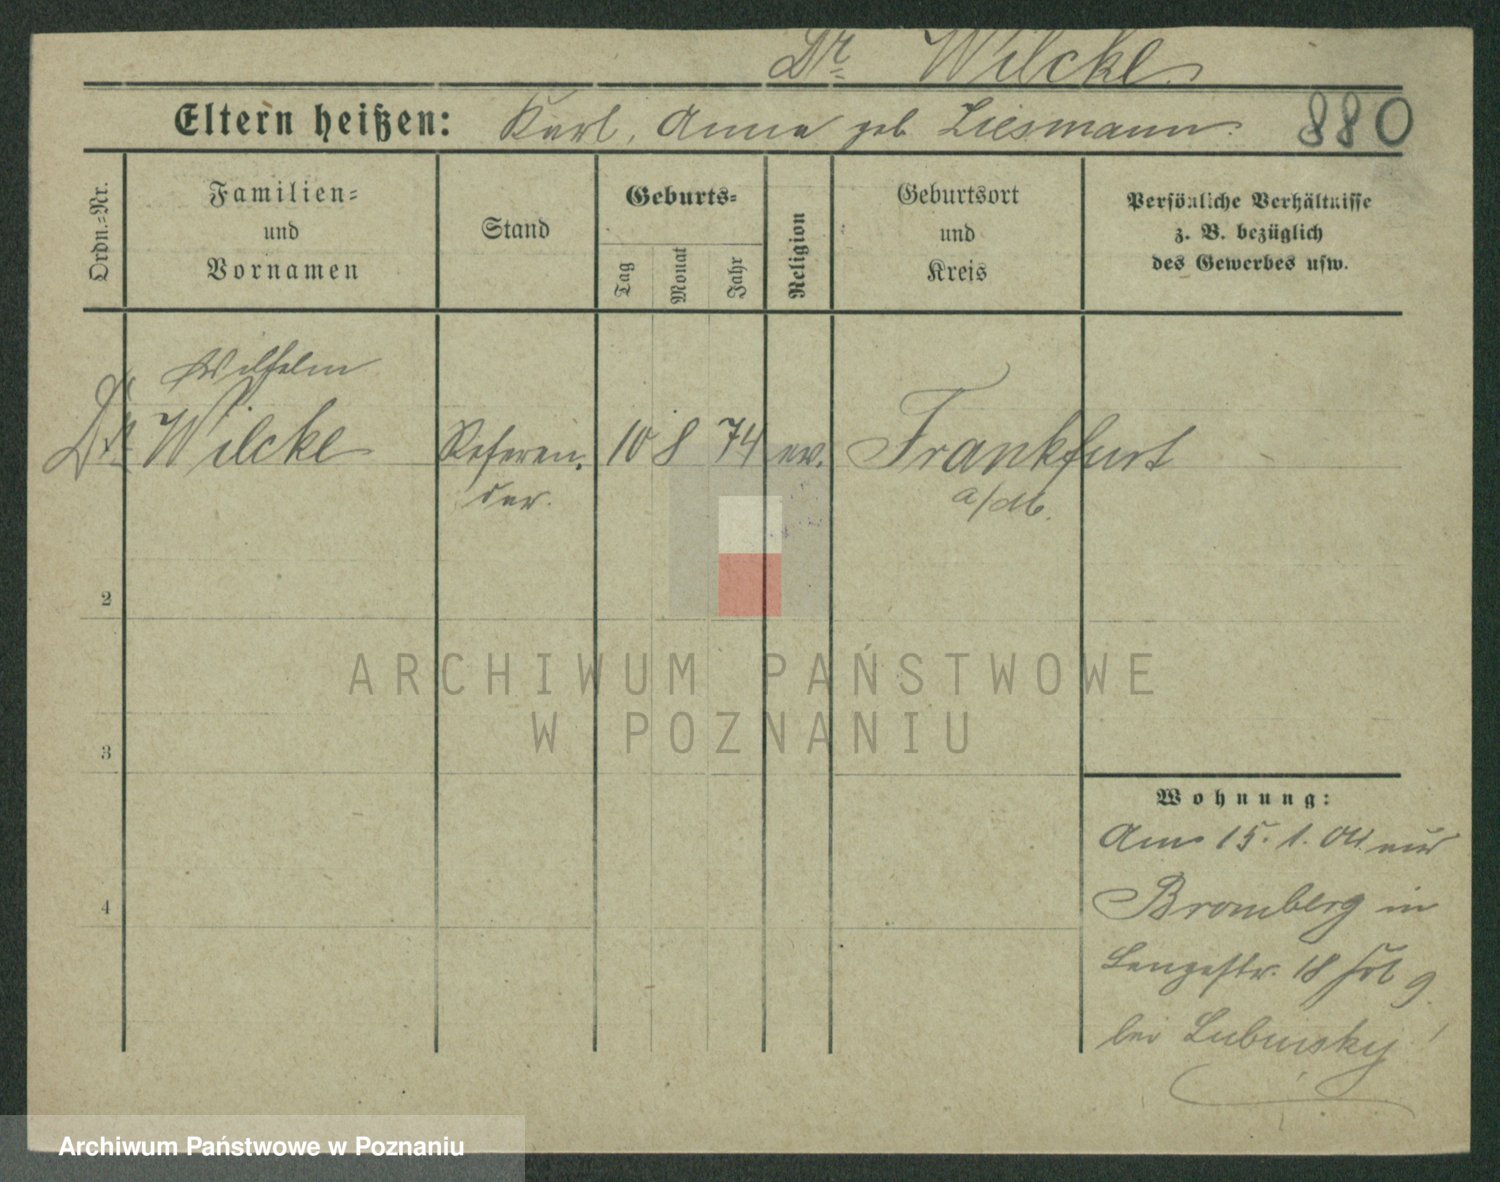 Dr. Wilcke.
Eltern heißen: Karl, Anna geb. Liesmann. 880
Ordn.-Nr.
Familien-
und
Vornamen
Stand
Geburts-
Tag
Monat
Jahr
Religion
Geburtsort
und
Kreis
Persönliche Verhältnisse
z. B. bezüglich
des Gewerbes usw.
Wilhelm
Dr. Wilcke Referen- 10 8 74 ev. Frankfurt
dar. a/
2
3
4
ARCHIWUM PAŃSTWOWE
W POZNANIU
Wohnung:
Am 15. 1. 04 aus
Bromberg in
Langestr. 18
bei Lubinsky
Archiwum Państwowe w Poznaniu